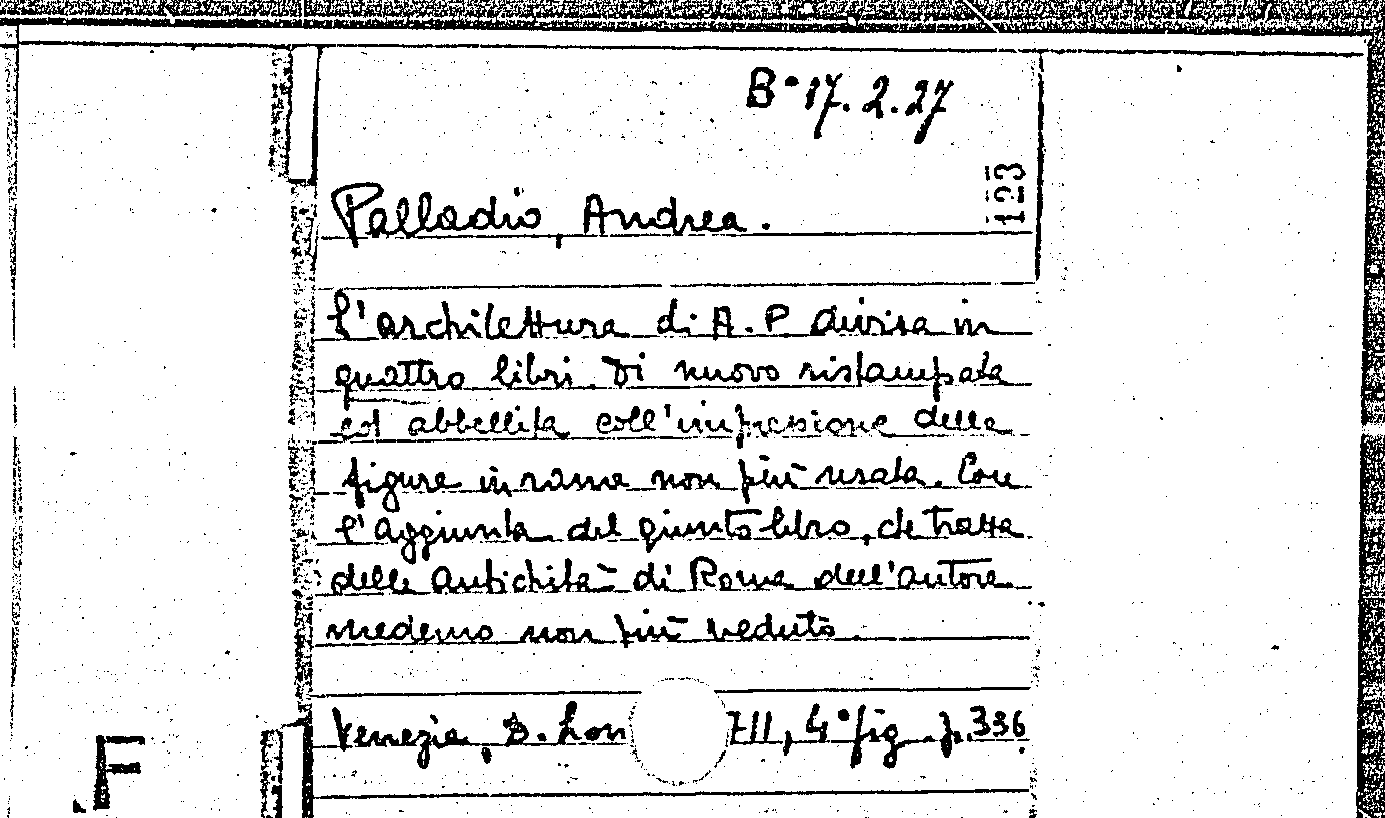 B° 17.2.27
123
Palladio, Andrea.
L'architettura di A. P. divisa in
quattro libri. Di nuovo ristampata
ed abbellita coll'impressione delle
figure in rame non più usata. Con
l'aggiunta del quinto libro, che tratta
delle antichità di Roma dell'autore
medemo non più veduto.
Venezia, D. Lon 711, 4° fig. p. 336
F